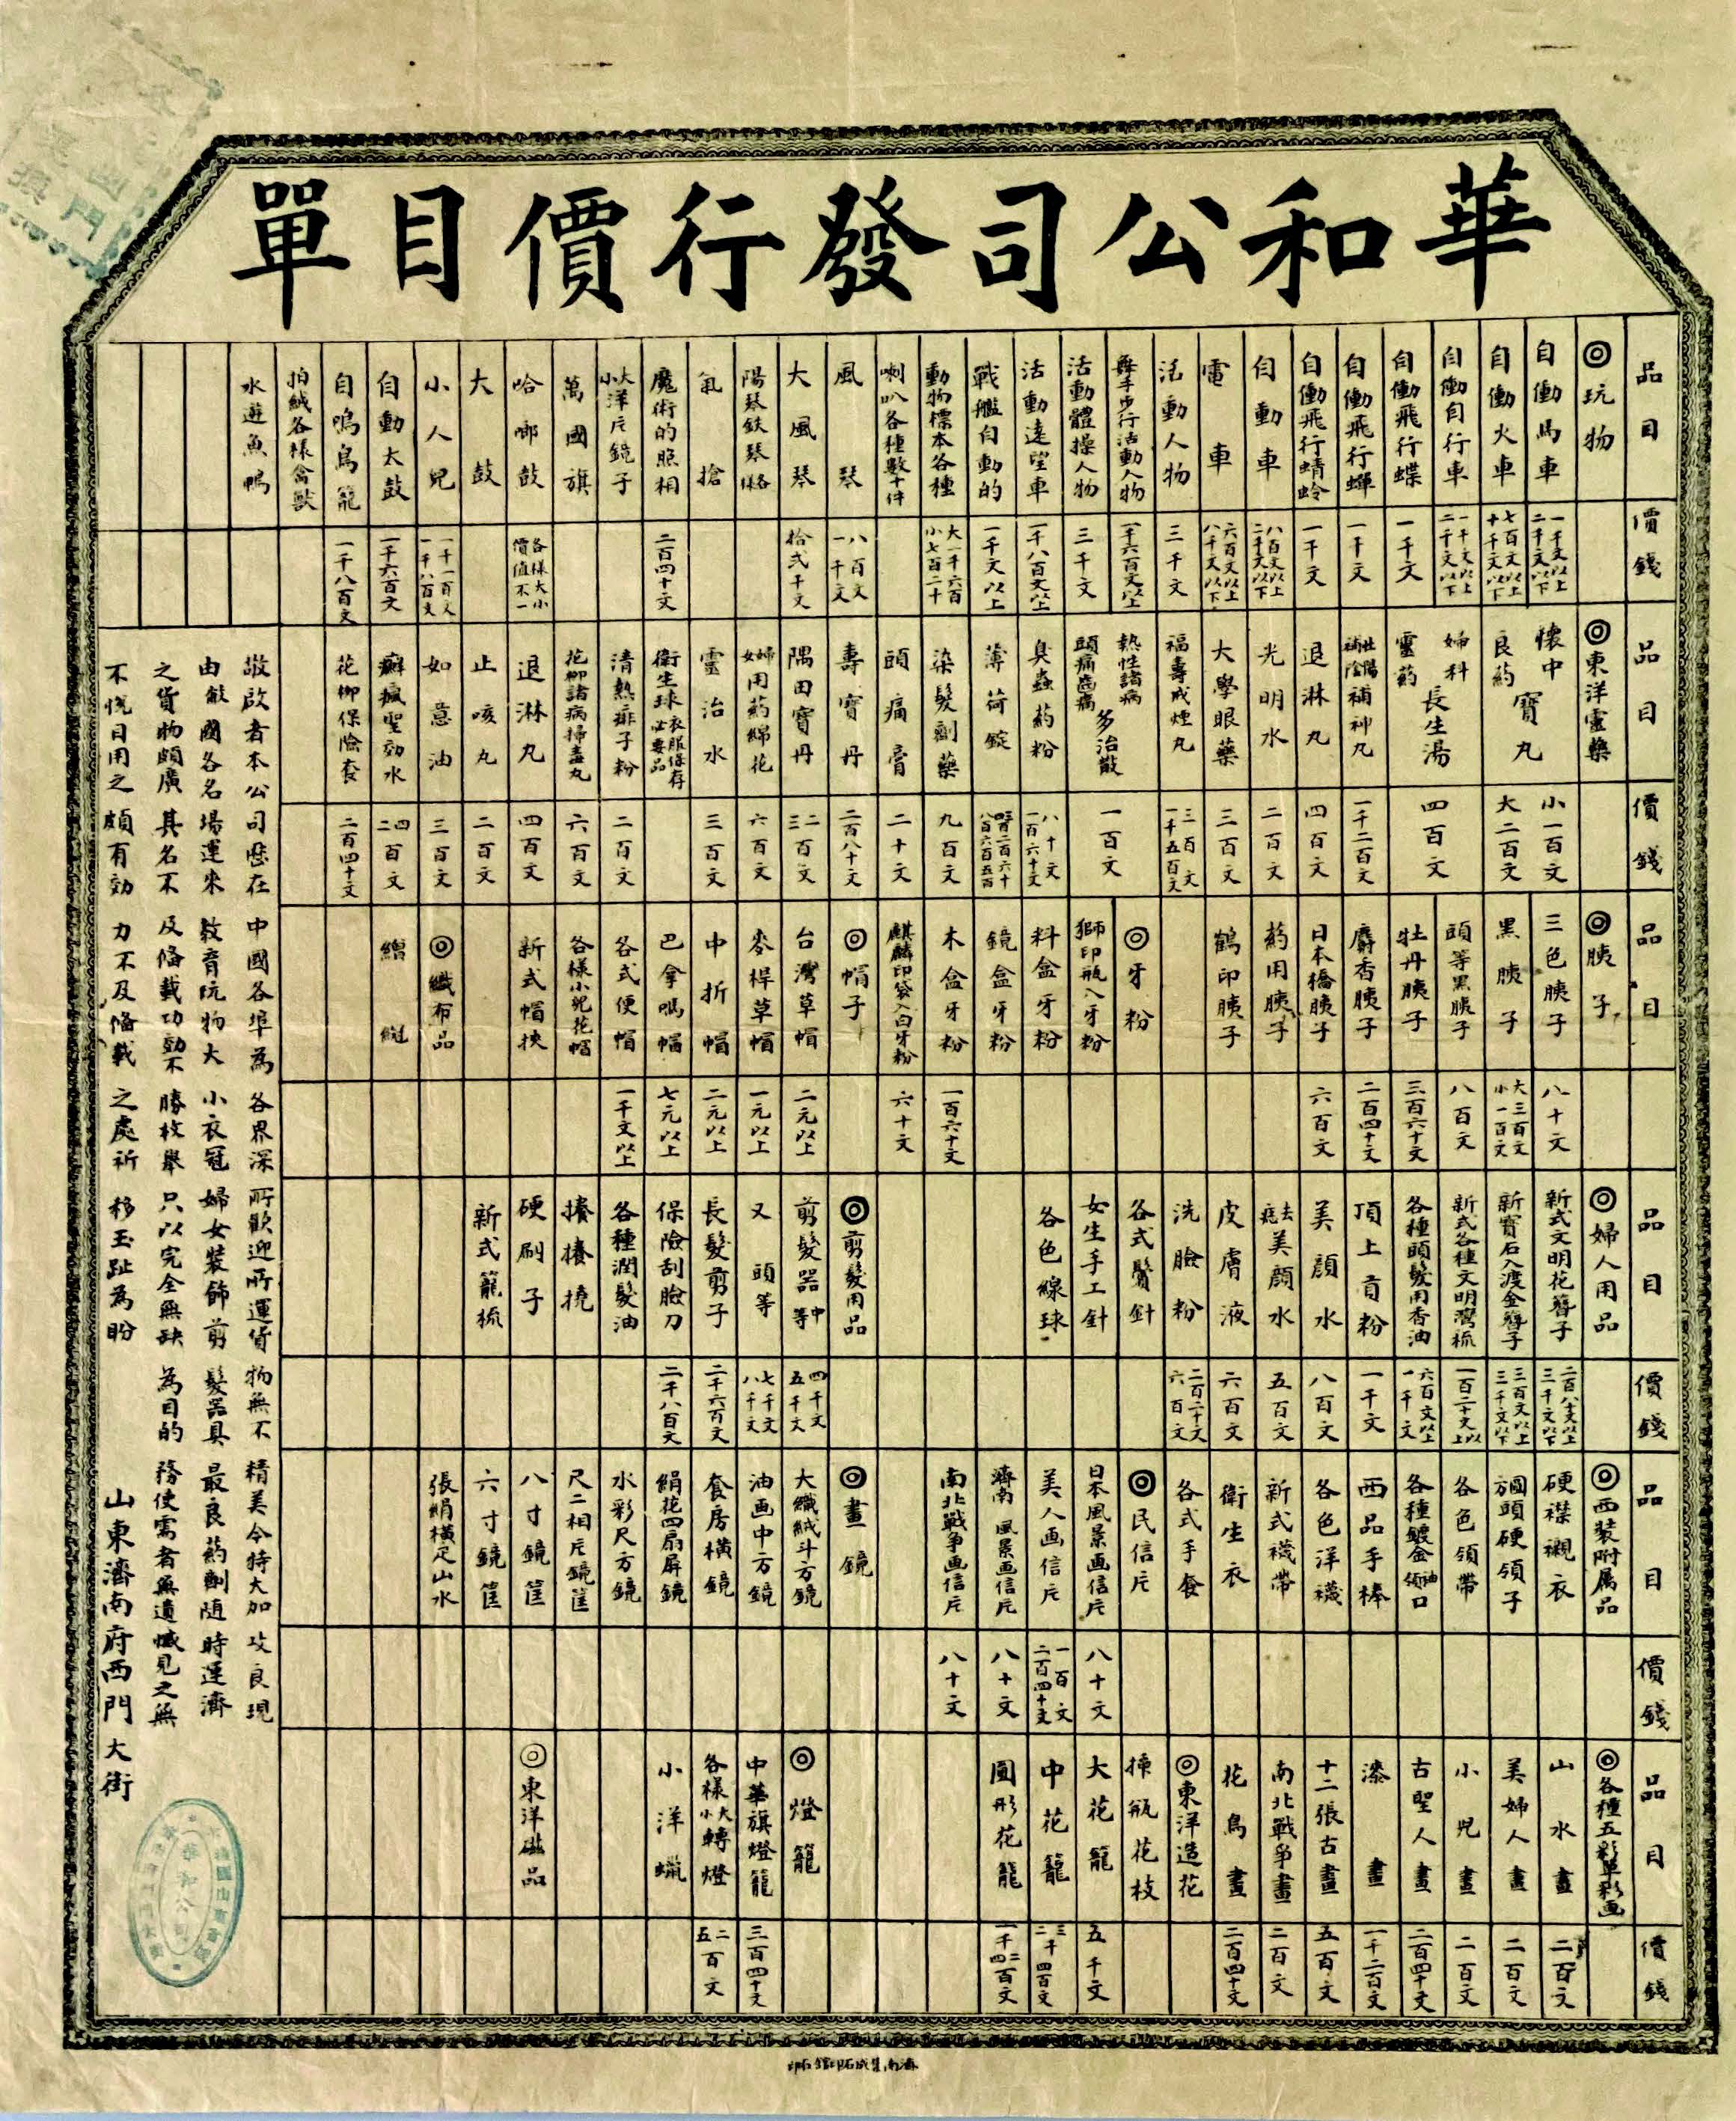 華和公司發行價目單
品目
價錢
◎玩物
自働馬車
一千文以上
二千文以下
自働火車
七百文以上
十千文以下
自働自行車
一千文以上
二千文以下
自働飛行蝶
一千文
自働飛行蟬
一千文
自働飛行蜻蛉
一千文
自動車
八百文以上
二千文以下
電車
六百文以上
八千文以下
活動人物
三千文
舞手步行活動人物
一千六百文以上
活動體操人物
三千文
活動遠望車
一千八百文以上
戰艦自動的
一千文以上
動物標本各種
大一千六百
小七百二十
喇叭各種數十件
風琴
八百文
一千文
大風琴
拾弍千文
陽琴鉄琴各樣
氣搶
魔術的照相
二百四十文
大小洋片鏡子
萬國旗
哈啷鼓
各樣大小
價值不一
大鼓
小人兒
一千一百文
一千八百文
自動太鼓
一千六百文
自鳴鳥籠
一千八百文
拍絨各樣禽獸
水遊魚鴨
品目
價錢
◎東洋靈藥
懷中良药寶丸
小一百文
大二百文
婦科靈药長生湯
四百文
壯陽補陰補神丸
一千二百文
退淋丸
四百文
光明水
二百文
大學眼藥
三百文
福壽戒煙丸
三百文
一千五百文
熱性諸病
頭痛齒痛
多治散
一百文
臭蟲药粉
八十文
一百六十文
薄荷錠
染髮劑藥
九百文
頭痛膏
二十文
壽寶丹
二百八十文
隅田寶丹
二三百文
婦女用药綿花
六百文
靈治水
三百文
衛生球衣服保存必要品
清熱痱子粉
二百文
花柳諸病掃毒丸
六百文
退淋丸
四百文
止咳丸
二百文
如意油
三百文
癬瘋聖効水
四二百文
花柳保險套
二百四十文
品目
◎胰子
三色胰子
八十文
黑胰子
大三百文
小一百文
頭等黑胰子
八百文
牡丹胰子
三百六十文
麝香胰子
二百四十文
日本橋胰子
六百文
药用胰子
鶴印胰子
◎牙粉
獅印瓶入牙粉
料盒牙粉
鏡盒牙粉
木盒牙粉
一百六十文
麒麟印袋入白牙粉
六十文
◎帽子
台灣草帽
二元以上
麥桿草帽
一元以上
中折帽
二元以上
巴拿嗎帽
七元以上
各式便帽
一千文以上
各樣小兒花帽
新式帽挾
◎織布品
品目
價錢
◎婦人用品
新式文明花簪子
二百八十文以上
三千文以下
新寶石入渡金簪子
三百文以上
三千文以下
新式各種文明灣梳
一百二十文以上
各種頭髮用香油
六百文以上
一千文
頂上貢粉
一千文
美顔水
八百文
去痣美顔水
五百文
皮膚液
六百文
洗臉粉
二百二十文
六百文
各式鬢針
女生手工針
各色線球
◎剪髮用品
剪髮器中等
四千文
五千文
又頭等
七千文
八千文
長髮剪子
二千六百文
保險刮臉刀
二千八百文
各種潤髮油
搼搼撓
硬刷子
新式籠梳
品目
價錢
◎西裝附属品
硬襟襯衣
方圓頭硬領子
各色領帶
各種鍍金袖領口
西品手棒
各色洋襪
新式襪帶
衛生衣
各式手套
◎民信片
日本風景画信片
八十文
美人画信片
一百文
二百四十文
濟南風景画信片
八十文
南北戰争画信片
八十文
◎畫鏡
大織絨斗方鏡
油画中方鏡
套房橫鏡
絹花四扇屏鏡
水彩尺方鏡
尺二相片鏡筐
八寸鏡筐
六寸鏡筐
張絹橫疋山水
品目
價錢
◎各種五彩單彩画
山水畫
二百文
美婦人畫
二百文
小兒畫
二百文
古聖人畫
二百四十文
漆畫
一千二百文
十二張古畫
五百文
南北戰争畫
二百文
花鳥畫
二百四十文
◎東洋造花
揷瓶花枝
大花籠
五千文
中花籠
三二千四百文
圓形花籠
一千四二百文
◎燈籠
中華旗燈籠
三百四十文
各樣大小轉燈
二五百文
小洋蠟
◎東洋磁品
敬啟者本公司歷在中國各埠為各界深所歡迎所運貨物無不精美今特大加攻良現
由敝國各名場運來教育玩物大小衣冠婦女裝飾剪髮器具最良药劑随時運濟
之貨物頗廣其名不及偹載功効不勝枚舉只以完全無缺為目的務使需者無遺憾見之無
不悅目用之頗有効力不及偹載之處祈移玉趾為盼
山東濟南府西門大街